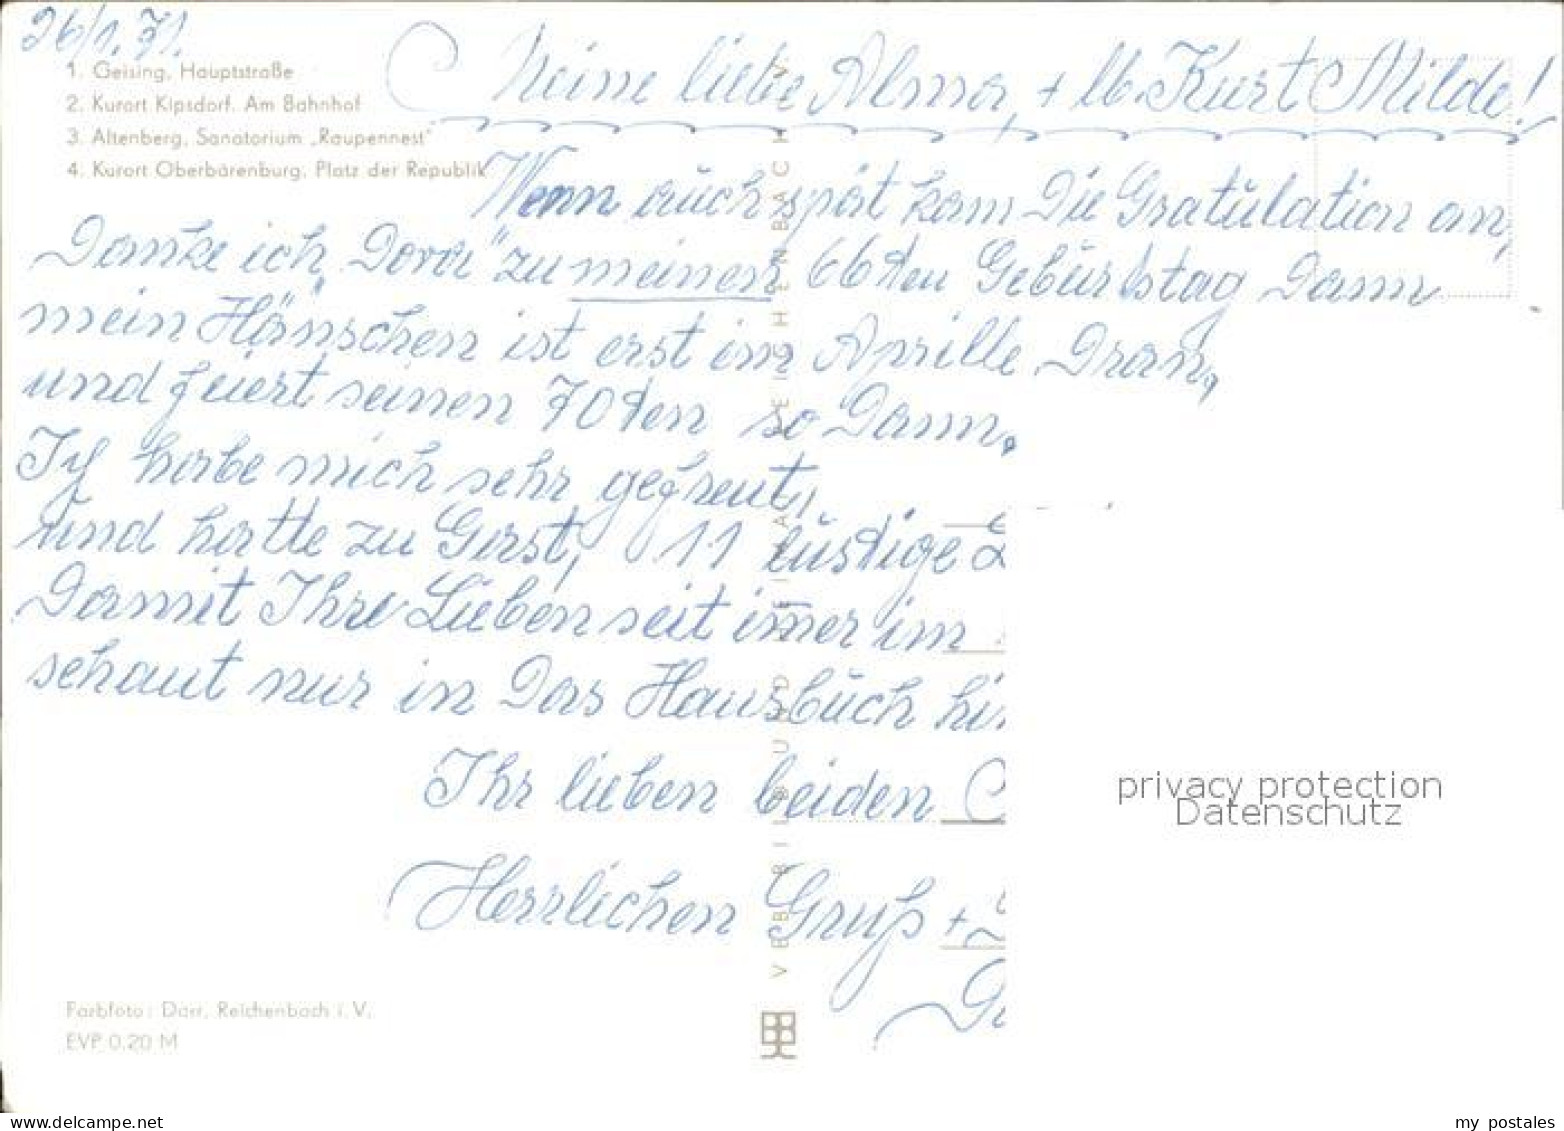 26/1. 71.
Meine liebe Alma, + lb. Kurt Milde!
1. Geising, Hauptstraße
2. Kurort Kipsdorf. Am Bahnhof
3. Altenberg, Sanatorium „Raupennest"
4. Kurort Oberbärenburg, Platz der Republik
Wenn auch spät kam Die Gratulation an,
Danke ich „Dora" zu meinen 66ten Geburtstag Dann
mein „Hänschen" ist erst im Aprille Dran,
und feiert seinen 70ten so Dann.
Ich habe mich sehr gefreut,
und hatte zu Gast, 11 lustige
Damit Ihre Lieben seit immer im
schaut nur in Das Hausbuch
Ihr lieben beiden
Herzlichen Gruß +
VEB BILD UND HEIMAT REICHENBACH i. V.
privacy protection
Datenschutz
Farbfoto: Darr, Reichenbach i. V.
EVP 0.20 M
my postales
www.delcampe.net